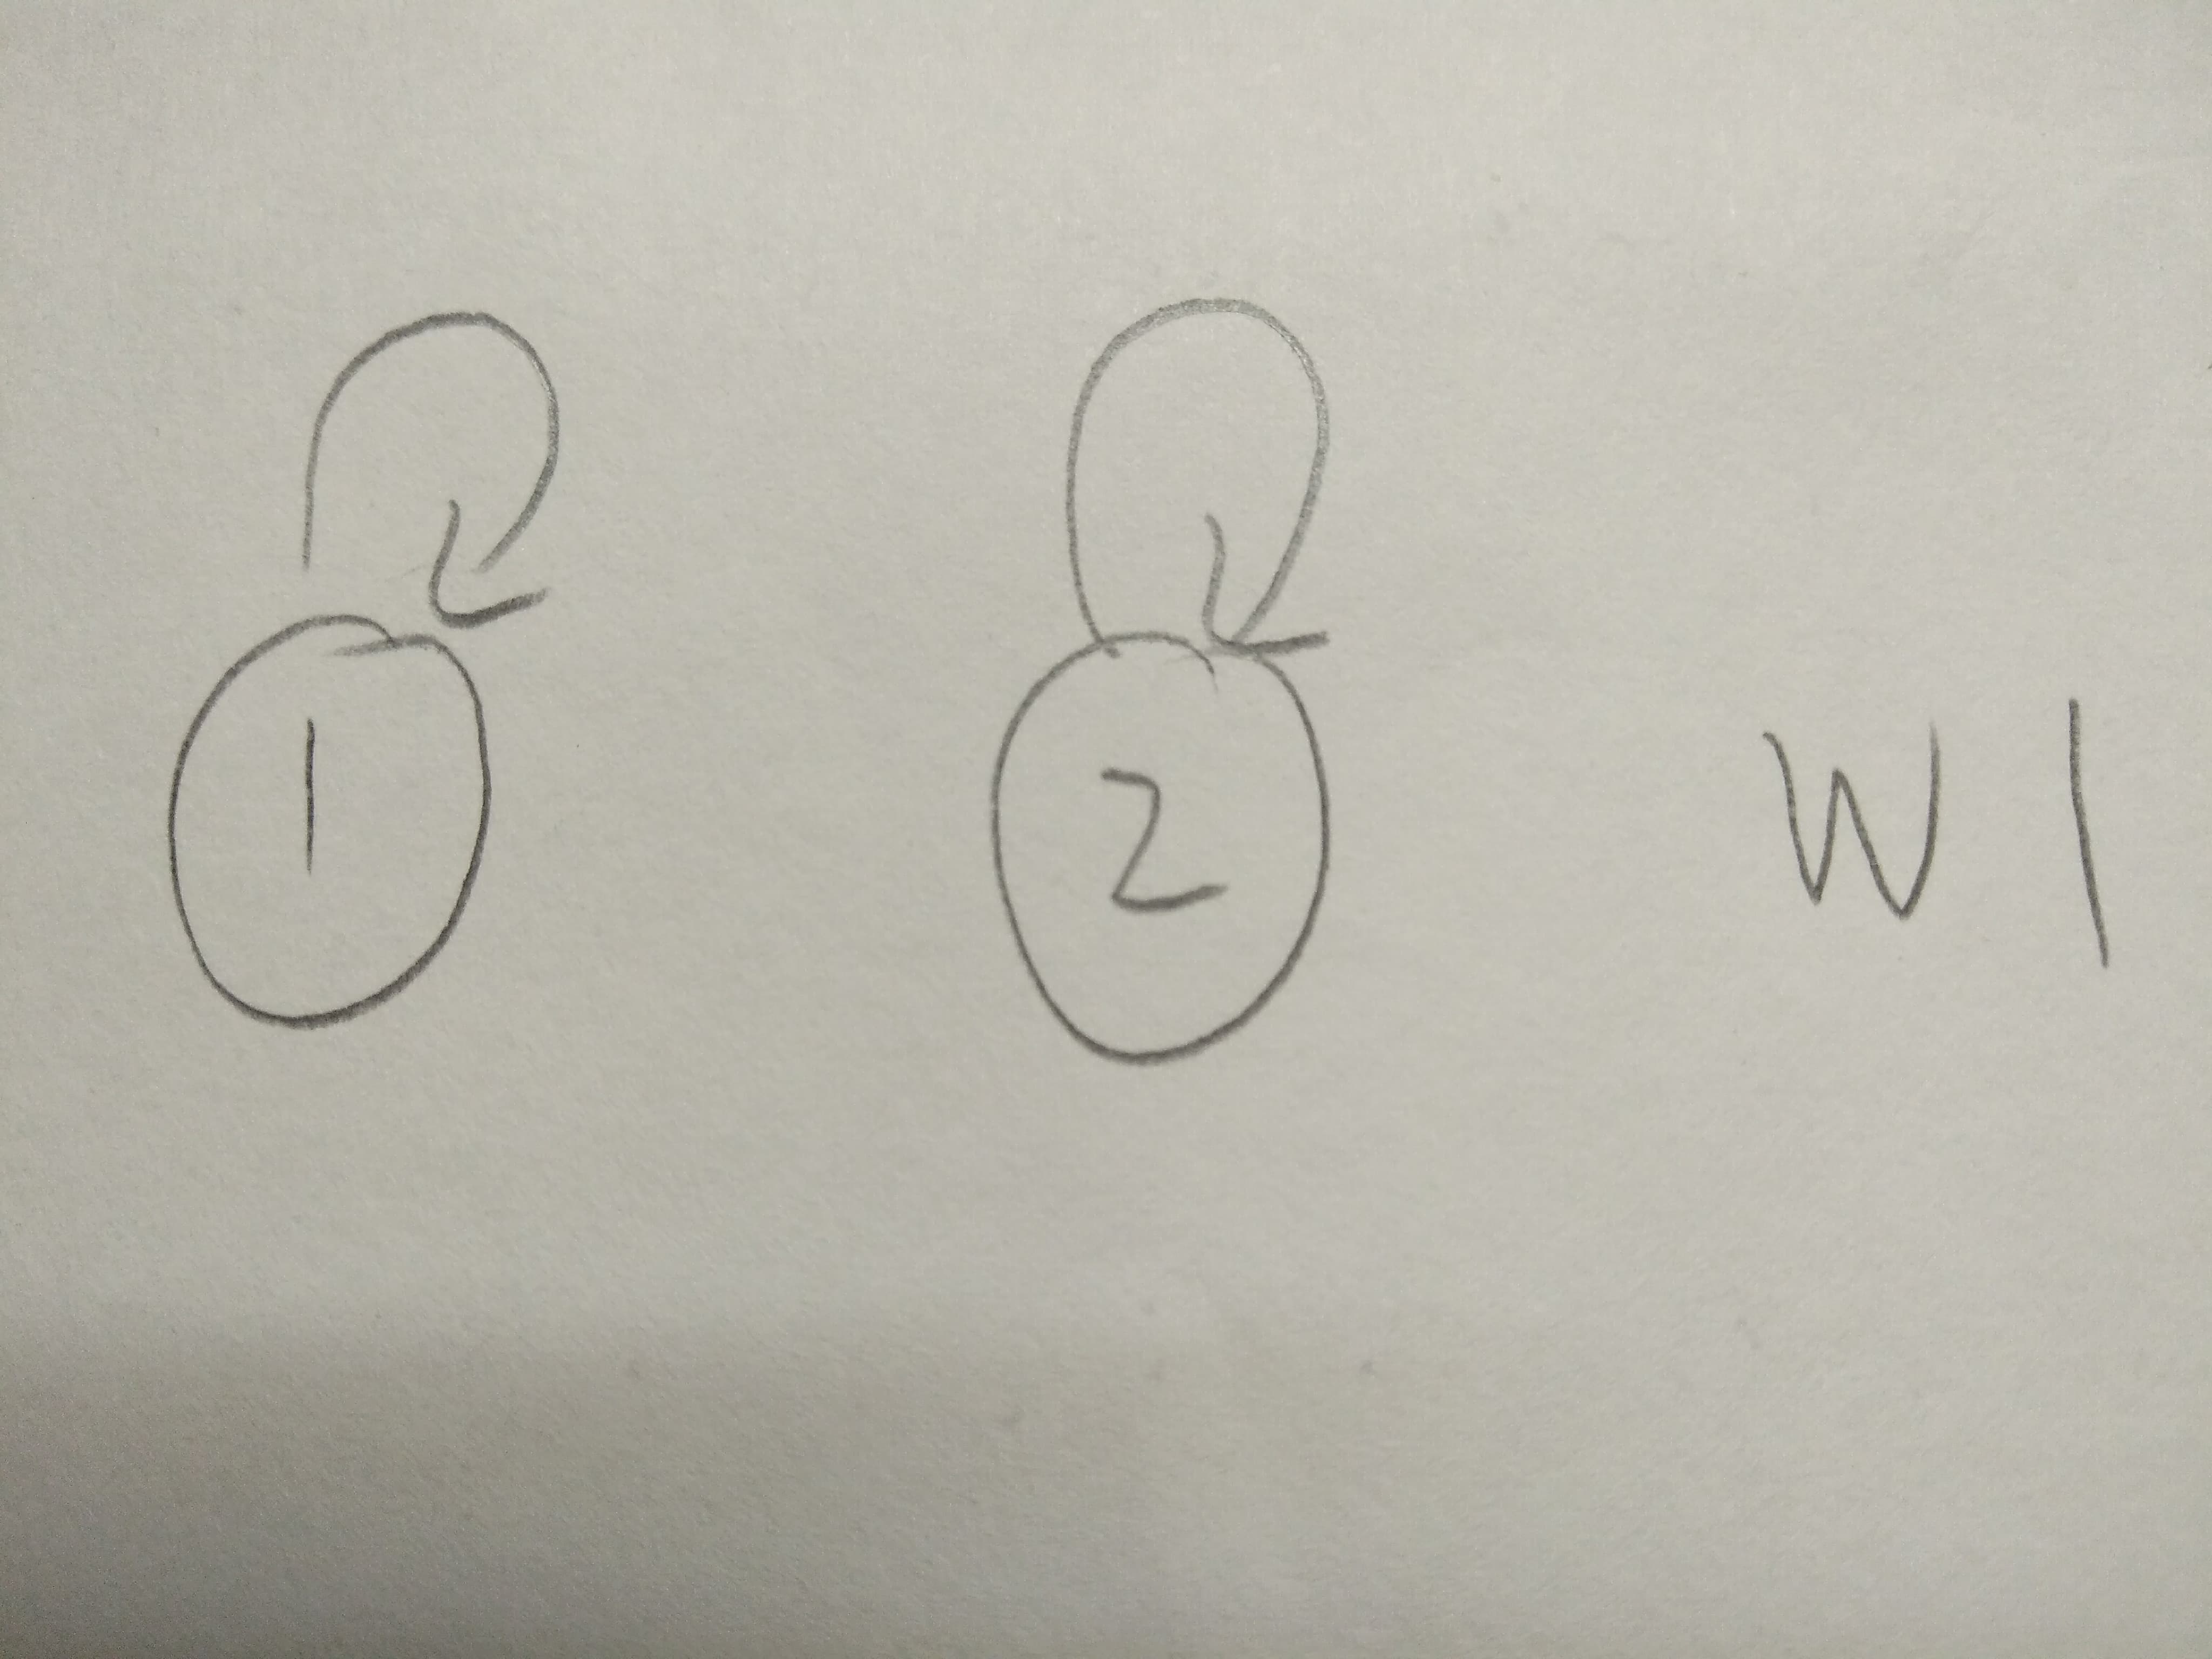 1 2 W 1